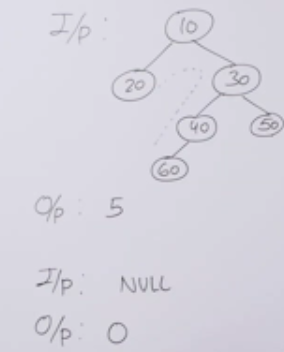 I/p:
10
20 30
40 50
60
O/p: 5
I/p: NULL
O/p: 0